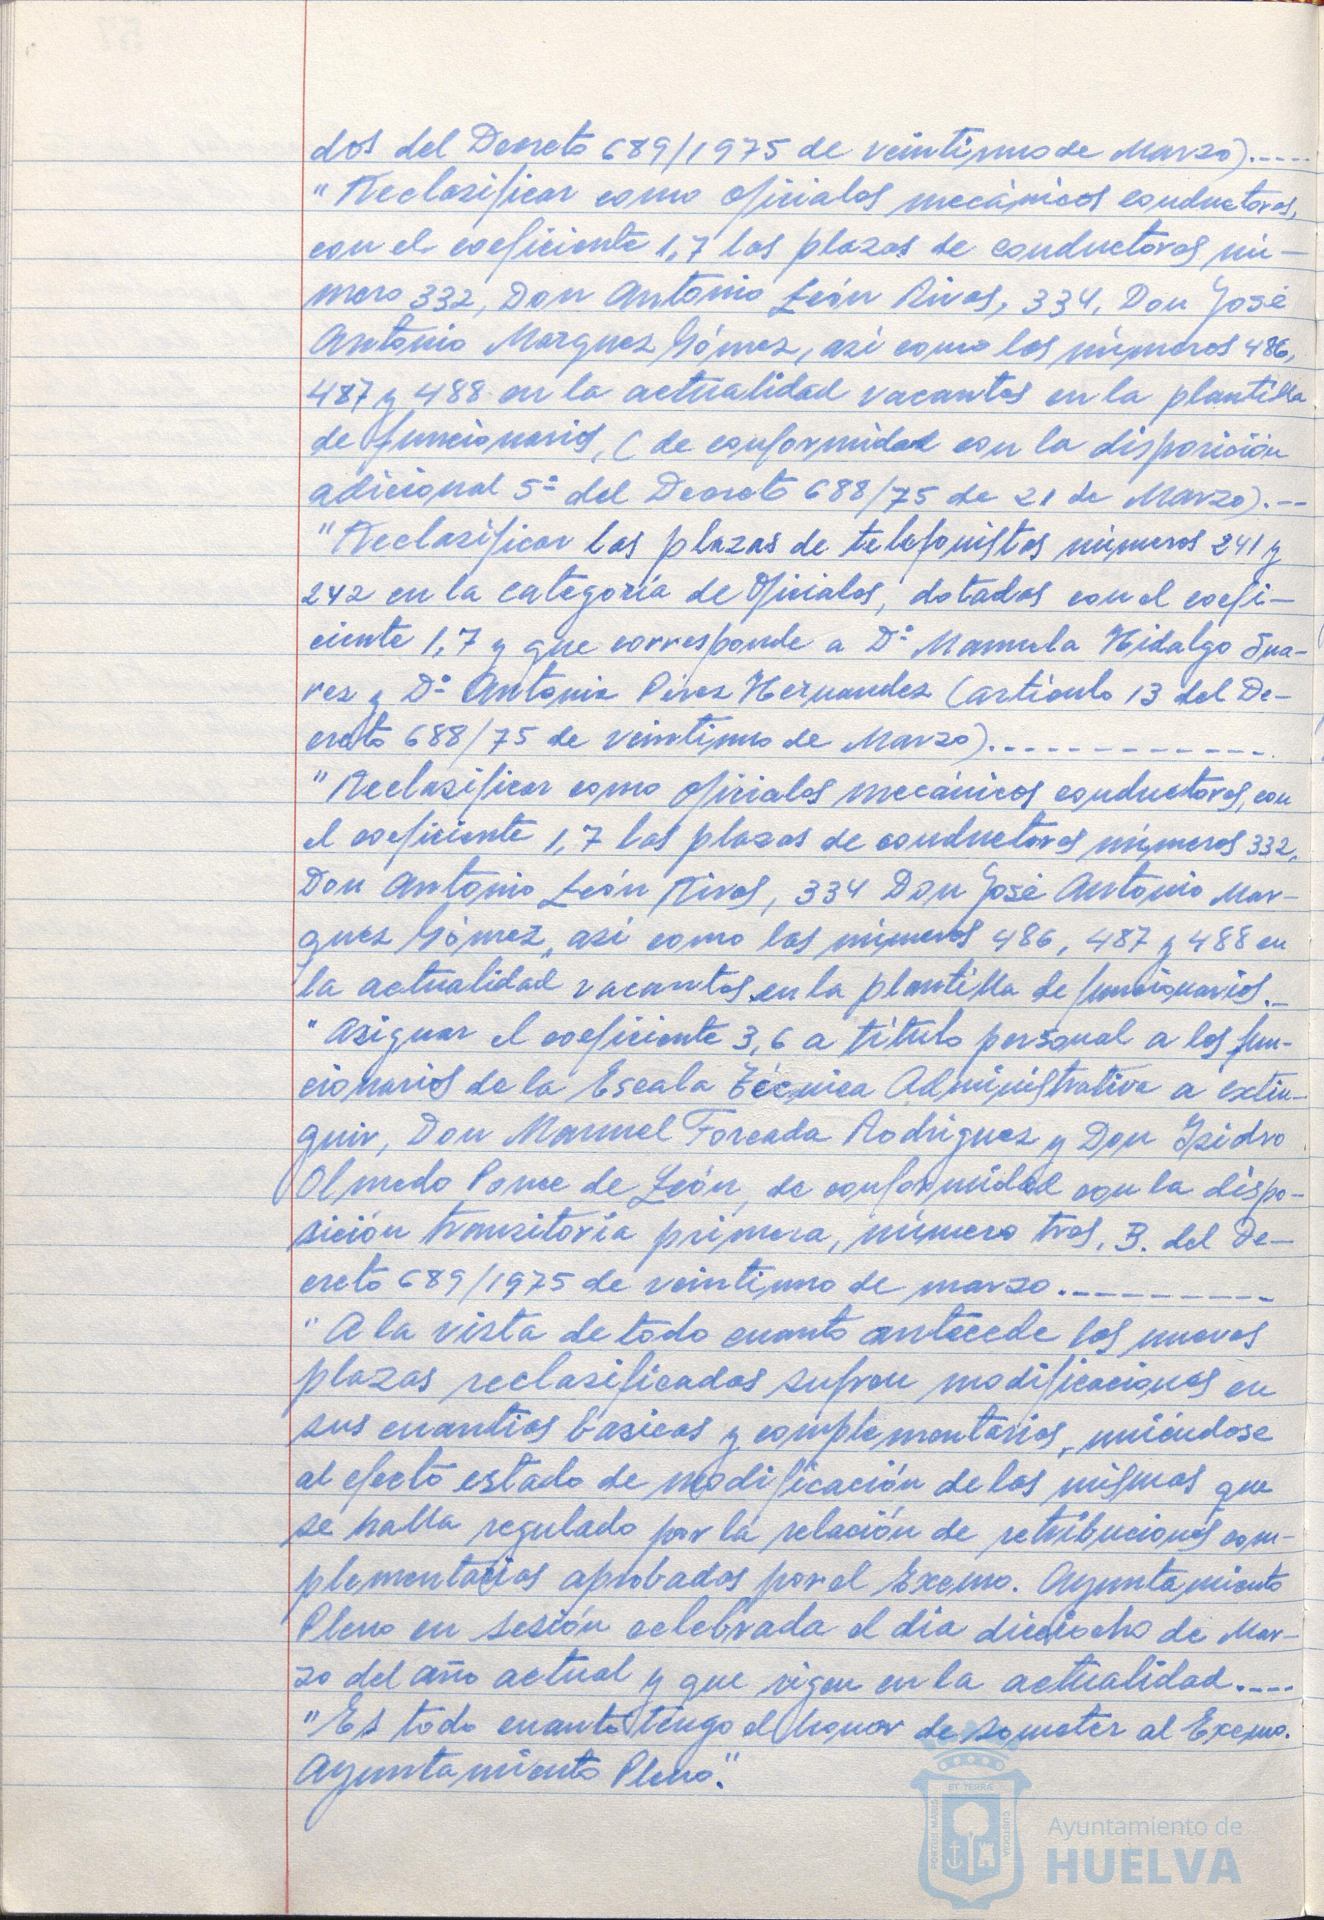 dos del Decreto 689/1975 de veintiuno de Marzo).----
"Reclasificar como oficiales mecánicos conductores,
con el coeficiente 1,7 las plazas de conductores nú-
mero 332, Don Antonio León Rivas, 334, Don José
Antonio Marquez Gómez, así como los números 486,
487 y 488 en la actualidad vacantes en la plantilla
de funcionarios, (de conformidad con la disposición
adicional 5ª del Decreto 688/75 de 21 de Marzo).--
"Reclasificar las plazas de telefonistas números 241 y
242 en la categoría de Oficiales, dotadas con el coefi-
ciente 1,7 y que corresponde a Dª Manuela Hidalgo Sua-
rez y Dª Antonia Pérez Hernandez (artículo 13 del De-
creto 688/75 de veintiuno de Marzo).------------
"Reclasificar como oficiales mecánicos conductores, con
el coeficiente 1,7 las plazas de conductores números 332,
Don Antonio León Rivas, 334 Don José Antonio Mar-
quez Gómez, así como los números 486, 487 y 488 en
la actualidad vacantes en la plantilla de funcionarios.-
"Asignar el coeficiente 3,6 a título personal a los fun-
cionarios de la Escala Técnica Administrativa a extin-
guir, Don Manuel Forcada Rodriguez y Don Isidro
Olmedo Ponce de León, de conformidad con la dispo-
sición transitoria primera, número tres, B. del De-
creto 689/1975 de veintiuno de marzo.----------
"A la vista de todo cuanto antecede las nuevas
plazas reclasificadas sufren modificaciones en
sus cuantías basicas y complementarias, uniéndose
al efecto estado de modificación de las mismas que
se halla regulado por la relación de retribuciones com-
plementarias aprobadas por el Excmo. Ayuntamiento
Pleno en sesión celebrada el día dieciocho de Mar-
zo del año actual y que rigen en la actualidad.----
"Es todo cuanto tengo el honor de someter al Excmo.
Ayuntamiento Pleno".
PORTUS MARIS
ET TERRAE
CUSTODIA
Ayuntamiento de
HUELVA